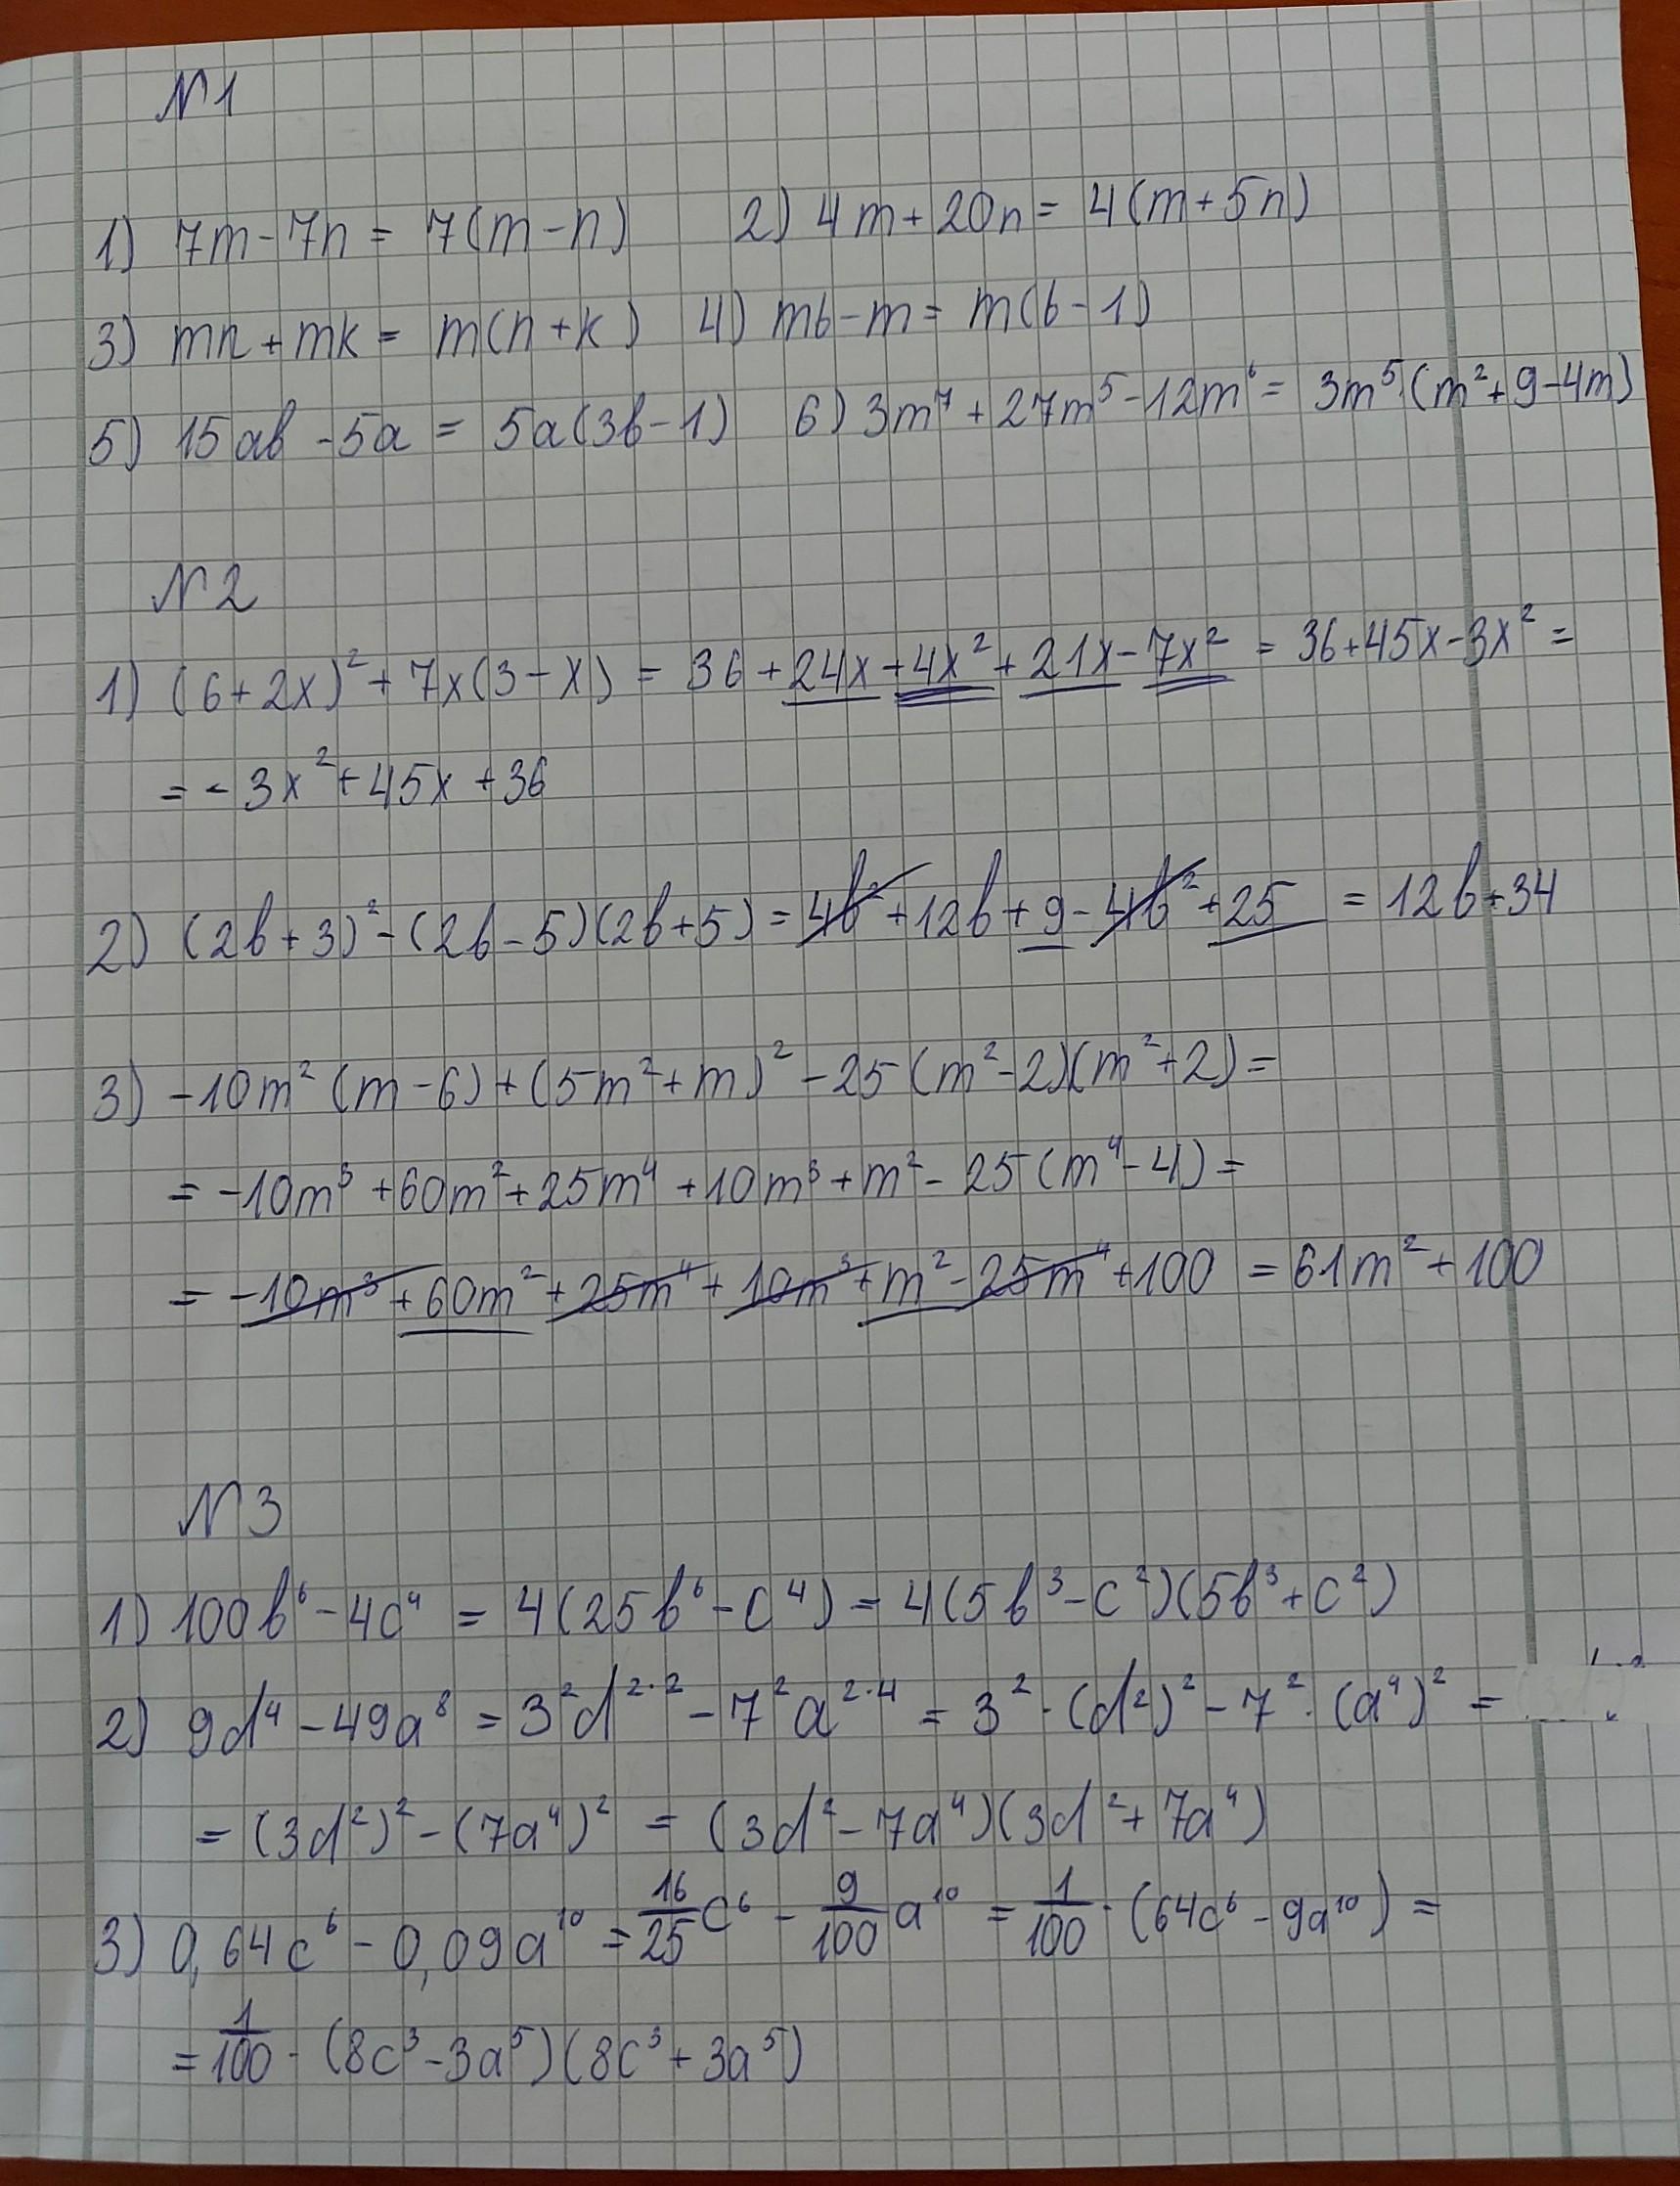 №1
1) 7m - 7n = 7(m - n) 2) 4m + 20n = 4(m + 5n)
3) mn + mk = m(n + k) 4) mb - m = m(b - 1)
5) 15ab - 5a = 5a(3b - 1) 6) 3m⁷ + 27m⁵ - 12m⁶ = 3m⁵(m² + 9 - 4m)
№2
1) (6 + 2x)² + 7x(3 - x) = 36 + 24x + 4x² + 21x - 7x² = 36 + 45x - 3x² =
= - 3x² + 45x + 36
2) (2b + 3)² - (2b - 5)(2b + 5) = 4b² + 12b + 9 - 4b² + 25 = 12b + 34
3) -10m² (m - 6) + (5m² + m)² - 25(m² - 2)(m² + 2) =
= -10m³ + 60m² + 25m⁴ + 10m³ + m² - 25(m⁴ - 4) =
= -10m³ + 60m² + 25m⁴ + 10m³ + m² - 25m⁴ + 100 = 61m² + 100
№3
1) 100b⁶ - 4c⁴ = 4(25b⁶ - c⁴) = 4(5b³ - c²)(5b³ + c²)
2) 9d⁴ - 49a⁸ = 3²d²·² - 7²a²·⁴ = 3² · (d²)² - 7² · (a⁴)² =
= (3d²)² - (7a⁴)² = (3d² - 7a⁴)(3d² + 7a⁴)
3) 0,64c⁶ - 0,09a¹⁰ = 16/25 c⁶ - 9/100 a¹⁰ = 1/100 · (64c⁶ - 9a¹⁰) =
= 1/100 · (8c³ - 3a⁵)(8c³ + 3a⁵)